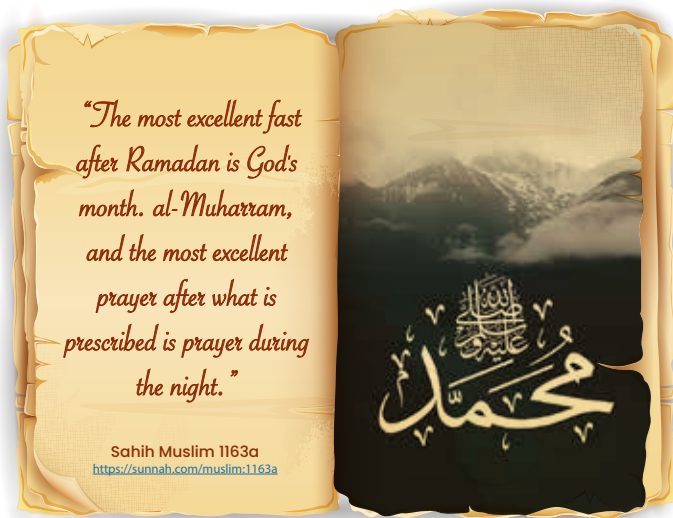 “The most excellent fast
after Ramadan is God's
month. al-Muharram,
and the most excellent
prayer after what is
prescribed is prayer during
the night.”
Sahih Muslim 1163a
https://sunnah.com/muslim:1163a
صلى الله
عليه وسلم
محمد